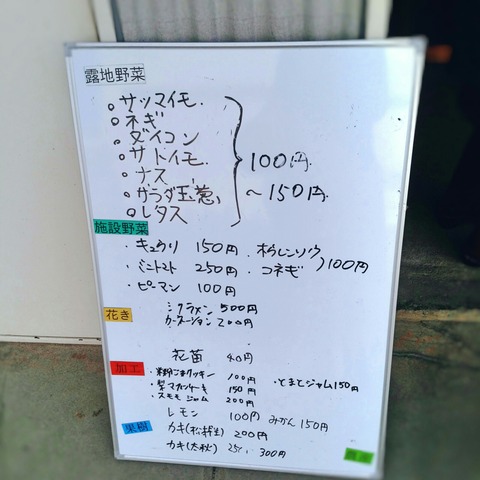 露地野菜
。サツマイモ.
。ネギ
。ダイコン
。サトイモ.
。ナス
。サラダ玉葱
。レタス
100円
～150円
施設野菜
・キュウリ 150円 ・ホウレンソウ
・ミニトマト 250円 ・コネギ 100円
・ピーマン 100円
花き
シクラメン 500円
カーネーション 200円
花苗 40円
加工
ごまクッキー 100円 ・とまとジャム150円
・梨マカンケーキ 150円
・スモモジャム 200円
果樹
レモン 100円 みかん 150円
カキ(松本早生) 200円
カキ(太秋) 250, 300円